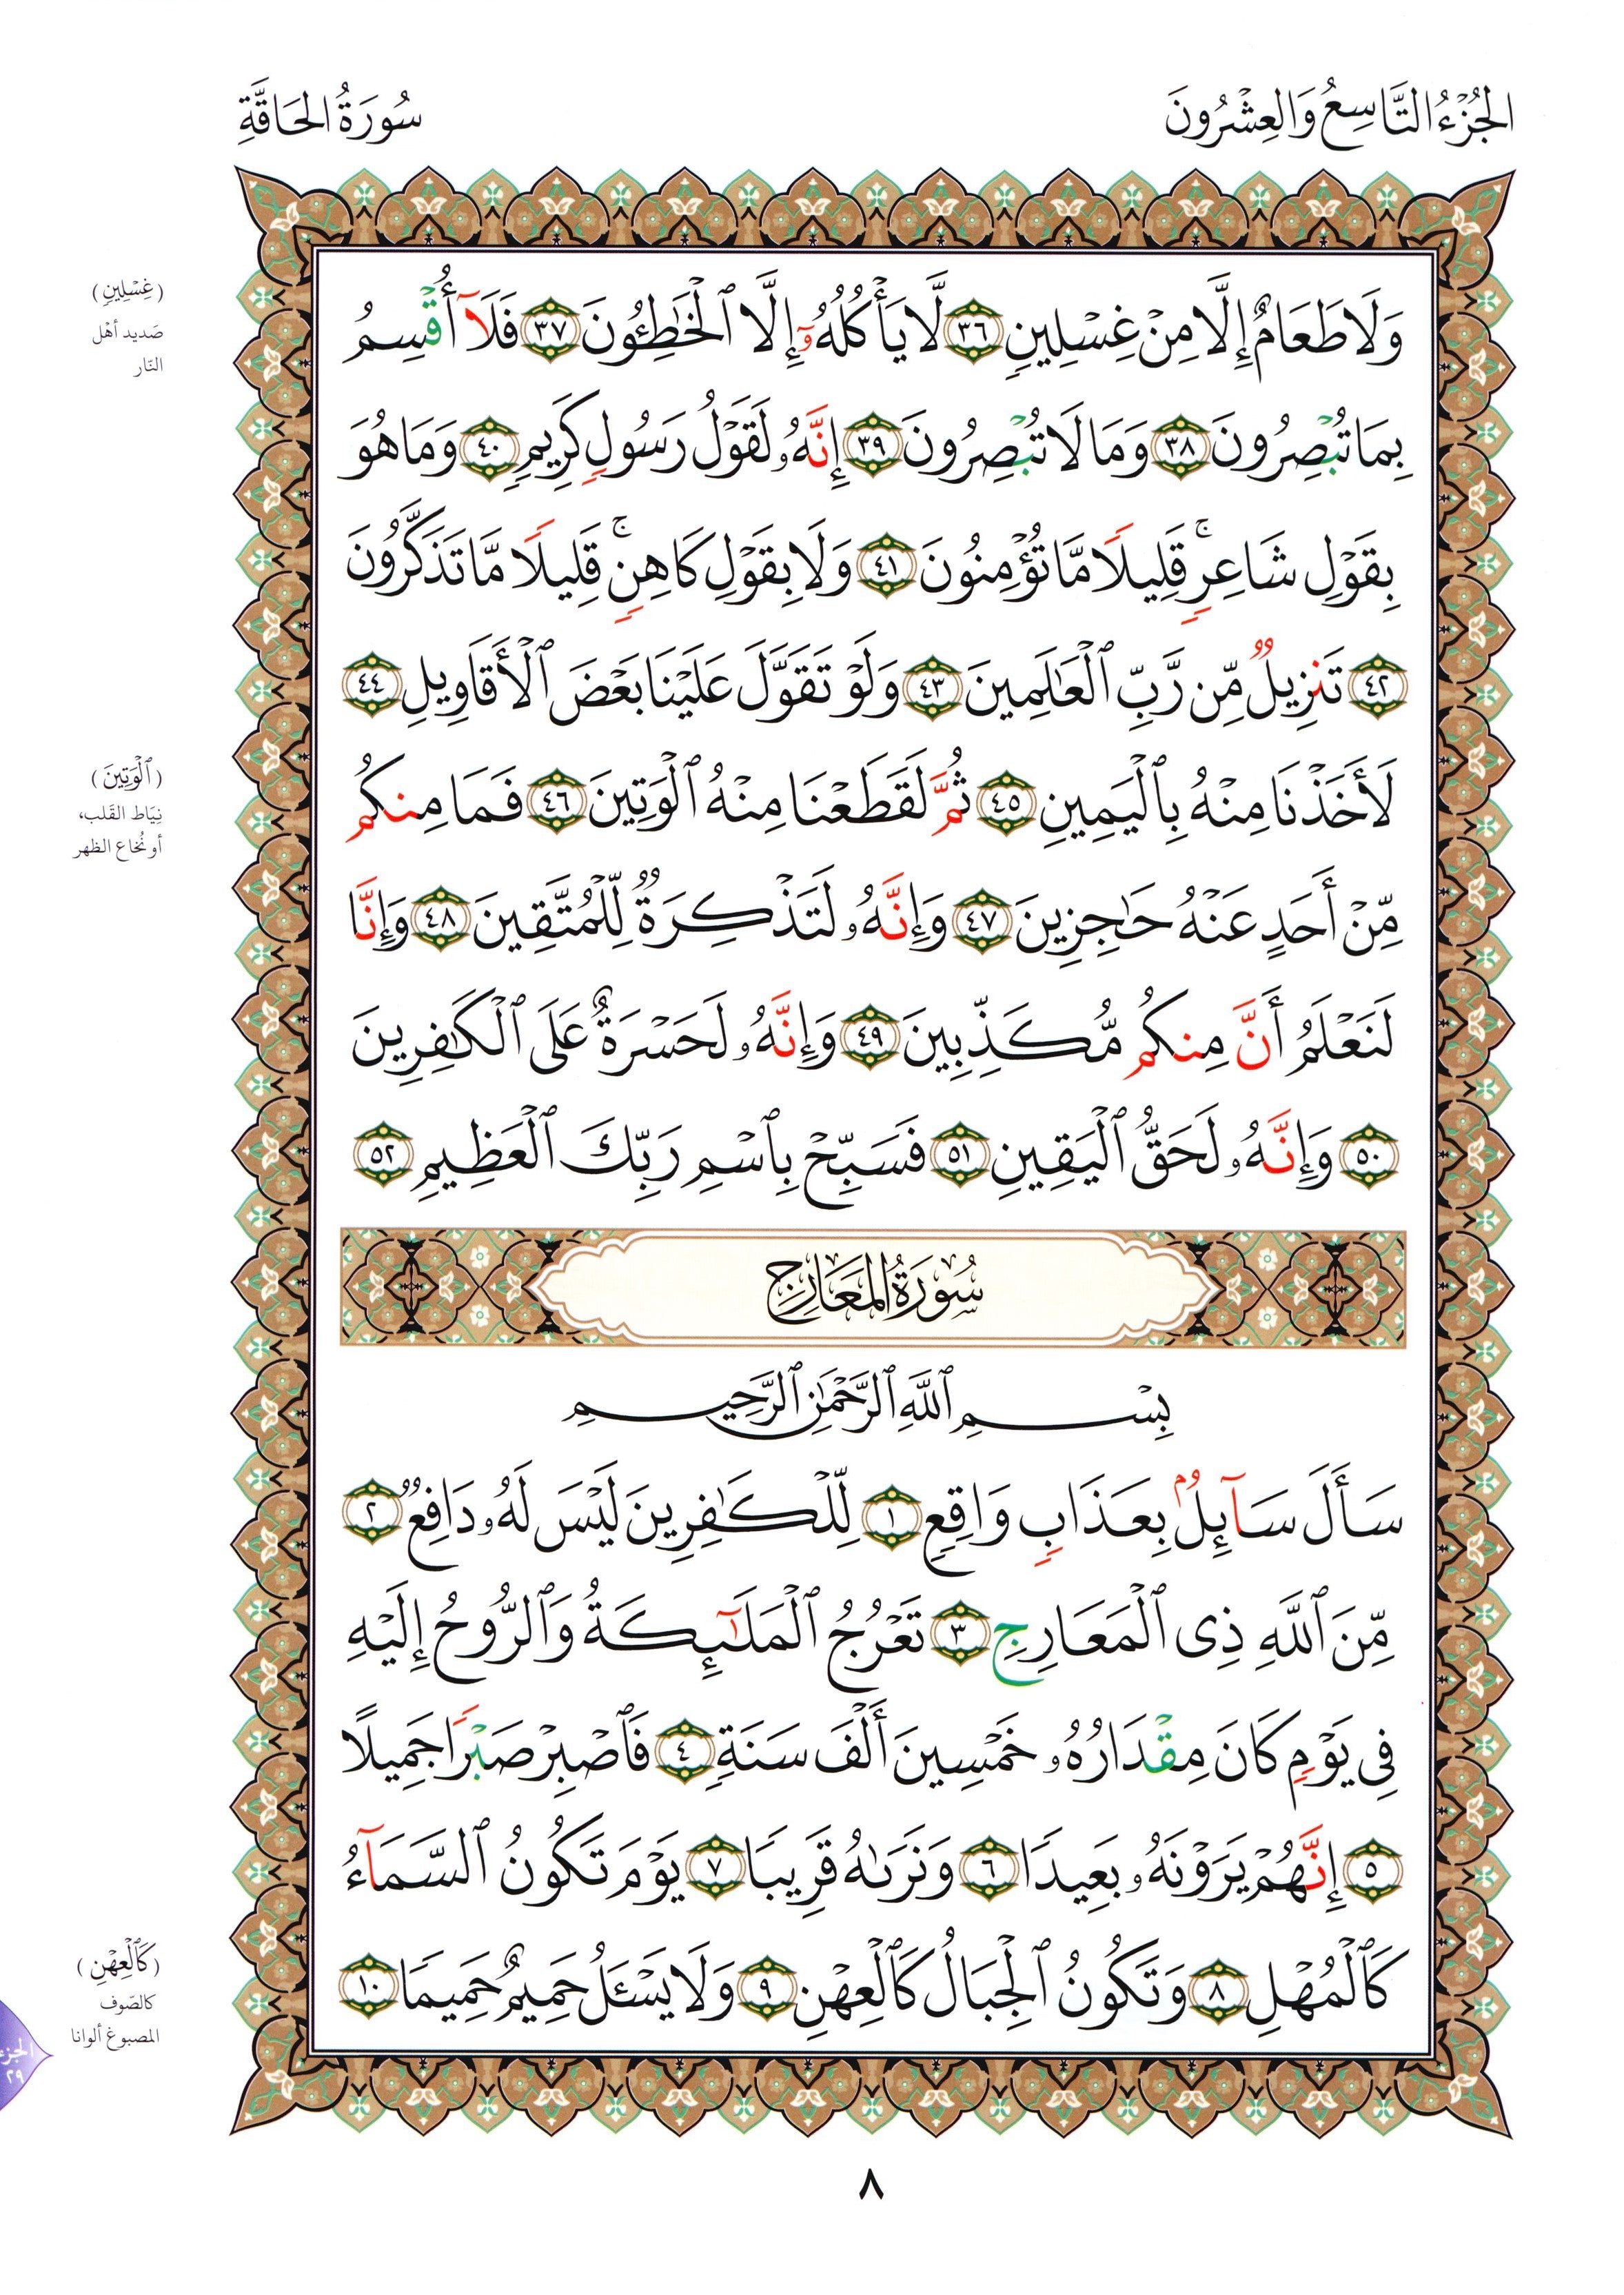 الجُزْءُ التَّاسِعُ وَالعِشْرُونَ
سُورَةُ الحَاقَّةِ
وَلَا طَعَامٌ إِلَّا مِنْ غِسْلِينٍ ٣٦ لَّا يَأْكُلُهُۥٓ إِلَّا ٱلْخَٰطِـُٔونَ ٣٧ فَلَآ أُقْسِمُ
بِمَا تُبْصِرُونَ ٣٨ وَمَا لَا تُبْصِرُونَ ٣٩ إِنَّهُۥ لَقَوْلُ رَسُولٍ كَرِيمٍ ٤٠ وَمَا هُوَ
بِقَوْلِ شَاعِرٍ ۚ قَلِيلًا مَّا تُؤْمِنُونَ ٤١ وَلَا بِقَوْلِ كَاهِنٍ ۚ قَلِيلًا مَّا تَذَكَّرُونَ
٤٢ تَنزِيلٌ مِّن رَّبِّ ٱلْعَٰلَمِينَ ٤٣ وَلَوْ تَقَوَّلَ عَلَيْنَا بَعْضَ ٱلْأَقَاوِيلِ ٤٤
لَأَخَذْنَا مِنْهُ بِٱلْيَمِينِ ٤٥ ثُمَّ لَقَطَعْنَا مِنْهُ ٱلْوَتِينَ ٤٦ فَمَا مِنكُم
مِّنْ أَحَدٍ عَنْهُ حَٰجِزِينَ ٤٧ وَإِنَّهُۥ لَتَذْكِرَةٌ لِّلْمُتَّقِينَ ٤٨ وَإِنَّا
لَنَعْلَمُ أَنَّ مِنكُم مُّكَذِّبِينَ ٤٩ وَإِنَّهُۥ لَحَسْرَةٌ عَلَى ٱلْكَٰفِرِينَ
٥٠ وَإِنَّهُۥ لَحَقُّ ٱلْيَقِينِ ٥١ فَسَبِّحْ بِٱسْمِ رَبِّكَ ٱلْعَظِيمِ ٥٢
سُورَةُ المَعَارِجِ
بِسْمِ ٱللَّهِ ٱلرَّحْمَٰنِ ٱلرَّحِيمِ
سَأَلَ سَآئِلٌۢ بِعَذَابٍ وَاقِعٍ ١ لِّلْكَٰفِرِينَ لَيْسَ لَهُۥ دَافِعٌ ٢
مِّنَ ٱللَّهِ ذِى ٱلْمَعَارِجِ ٣ تَعْرُجُ ٱلْمَلَٰٓئِكَةُ وَٱلرُّوحُ إِلَيْهِ
فِى يَوْمٍ كَانَ مِقْدَارُهُۥ خَمْسِينَ أَلْفَ سَنَةٍ ٤ فَٱصْبِرْ صَبْرًا جَمِيلًا
٥ إِنَّهُمْ يَرَوْنَهُۥ بَعِيدًا ٦ وَنَرَىٰهُ قَرِيبًا ٧ يَوْمَ تَكُونُ ٱلسَّمَآءُ
كَٱلْمُهْلِ ٨ وَتَكُونُ ٱلْجِبَالُ كَٱلْعِهْنِ ٩ وَلَا يَسْـَٔلُ حَمِيمٌ حَمِيمًا ١٠
(غِسْلِينٍ)
صَديد أهْل
النّار
(ٱلْوَتِينَ)
نِيَاط القَلب،
أو نُخاع الظهر
(كَٱلْعِهْنِ)
كالصّوف
المصبوغ ألوانا
الجزء
٢٩
٨